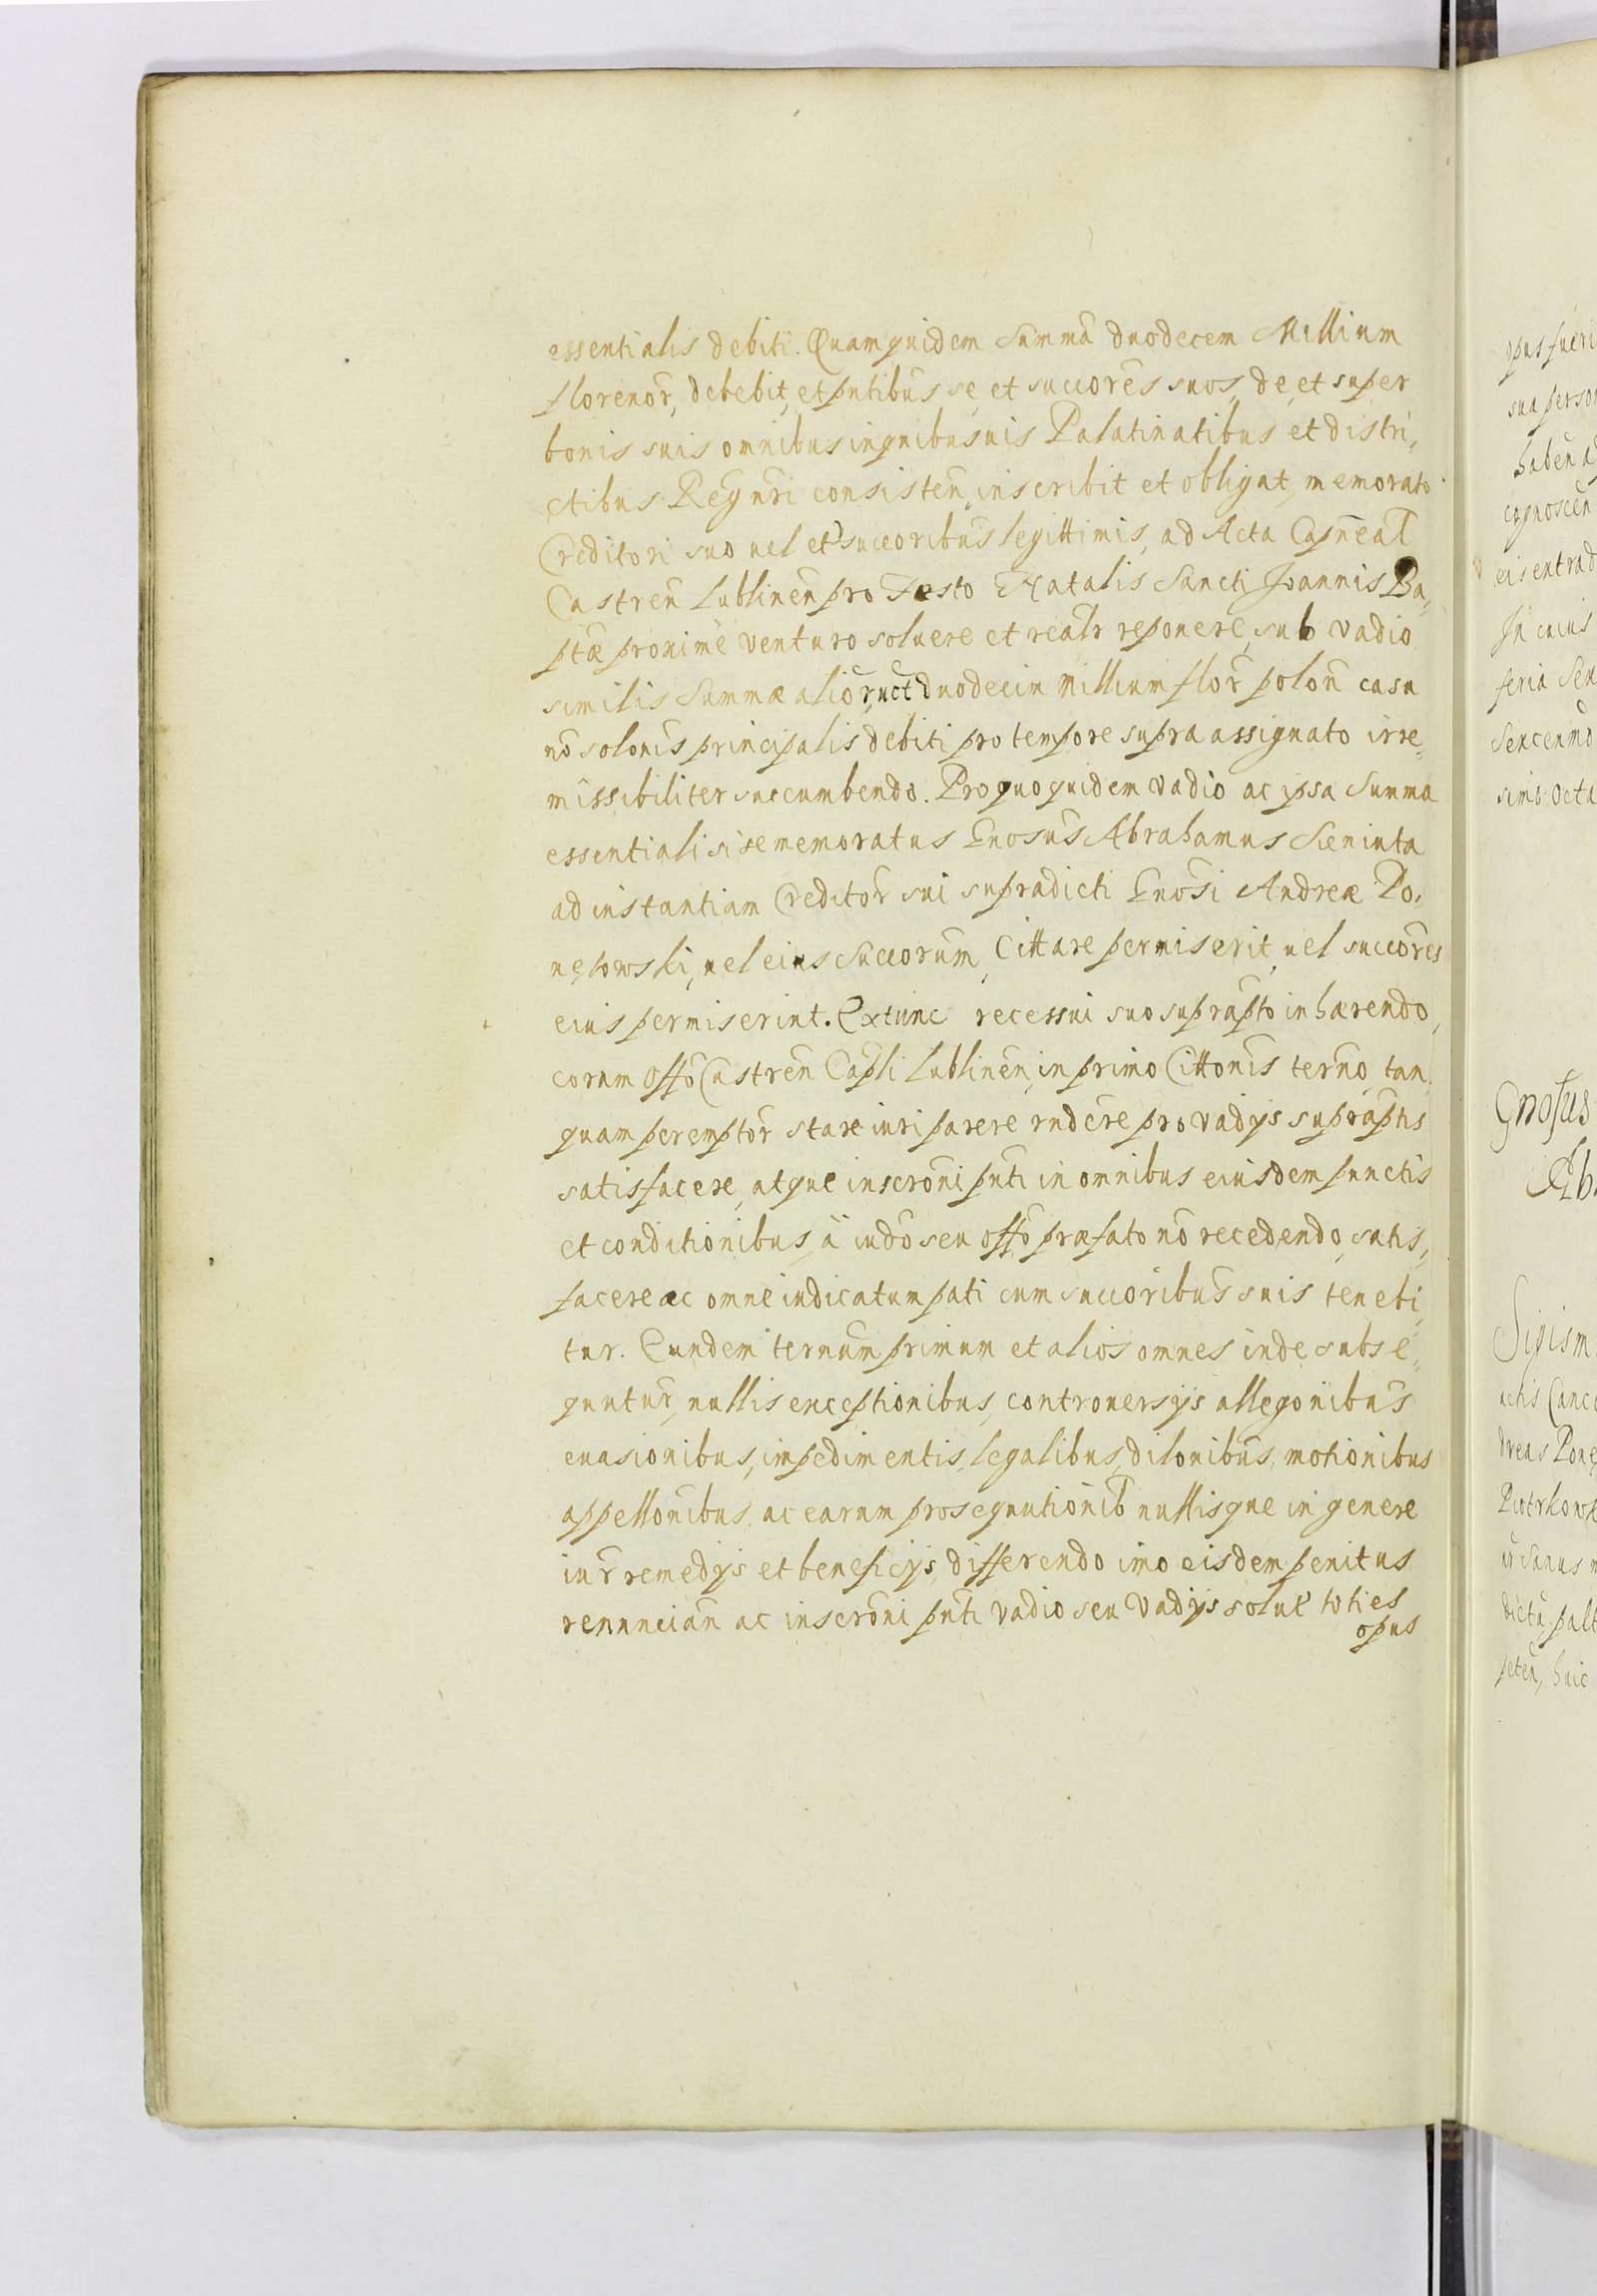 essentialis debiti. Quam quidem Summā duodecem Millium
florenor̄, debebit, et pn̄tibus se et succores suos, de et super
bonis suis omnibus in quibusuis Palatinatibus et distri„
ctibus Regni n̄ri consisten̄, inscribit et obligat, memorato
Creditori suo uel et succoribus legittimis, ad Acta Capnēal
Castren̄ Lublinen̄ pro Festo Natalis Sancti Joannis Ba„
ptæ proxime venturo soluere et realr̄ reponere, sub vadio
similis Summæ alior̄, duodecim Millium flor̄ polon̄ casu
nō solonīs principalis debiti pro tempore supra assignato irre„
missibiliter succumbendo. Pro quo quidem vadio ac ipsa Summa
essentiali si se memoratus Gnosus Abrahamus Sieniuta
ad instantiam Creditor̄ sui supradicti Gnosi Andreæ Po„
nętowski, uel eius Succorum, Cittare permiserit, uel succores
eius permiserint. Extunc recessui suo suprapto inhærendo,
coram offō Castren̄ Capli Lublinen̄, in primo Cittonis ter̄no, tan„
quam peremptor̄ stare iuri parere rndere pro vadijs supraptis
satisfacere, atque inscroni pn̄ti in omnibus eiusdem punctis
et conditionibus, à iudō seu offō præfato nō recedendo, satis„
facere ac omne iudicatum pati cum succoribus suis tenebi„
tur. Eundem ternum primum et alios omnes inde subse„
quntur̄, nullis exceptionibus, controuersijs allegonibus
euasionibus, impedimentis, legalibus, dilonibus, motionibus
appellonibus ac earum prosequutionib̄ nullisque in genere
iur̄ remedijs et beneficijs, differendo imo eisdem penitus
renunciān ac inscroni pn̄ti vadio seu Vadijs solut̄ toties
opus
opus fueri
sua perso
haben̄ a
cognoscen̄
eis extrad
In cuius
feria Sex
Sexcen̄mo
simo Octa
Gnosus
Ab
Sigism
Canc
dreas Ponę
Piotrkows